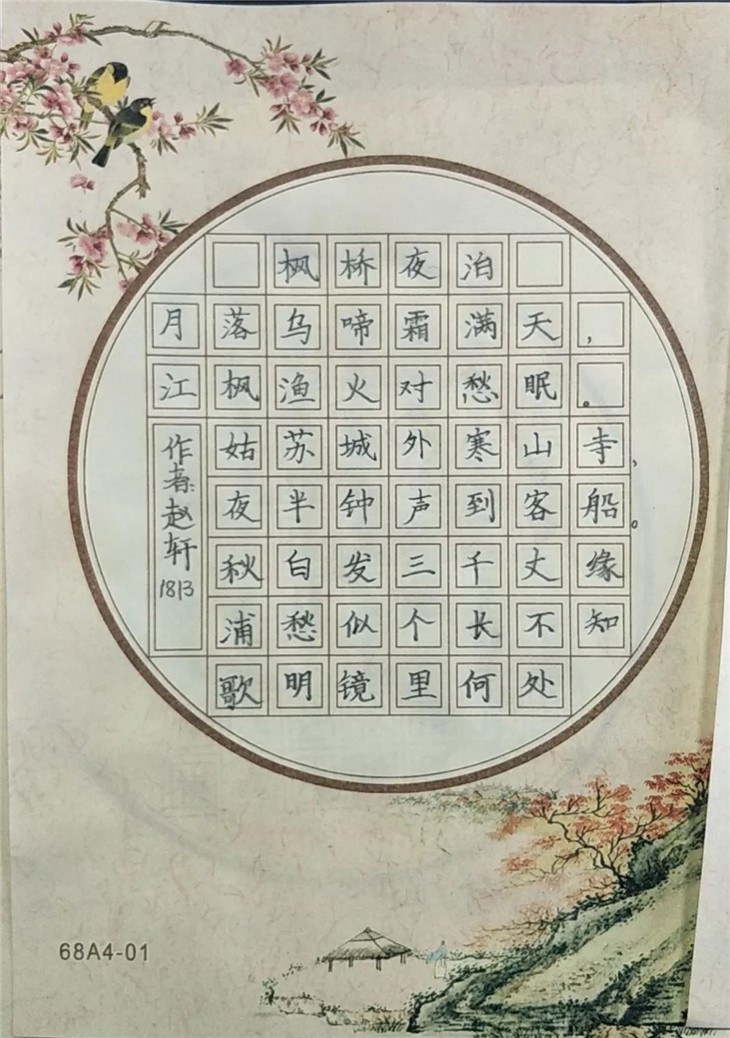 枫桥夜泊
月落乌啼霜满天，
江枫渔火对愁眠。
姑苏城外寒山寺，
夜半钟声到客船。
秋浦歌
白发三千丈缘
愁似个长不知
明镜里何处
作者:赵轩
1813
68A4-01